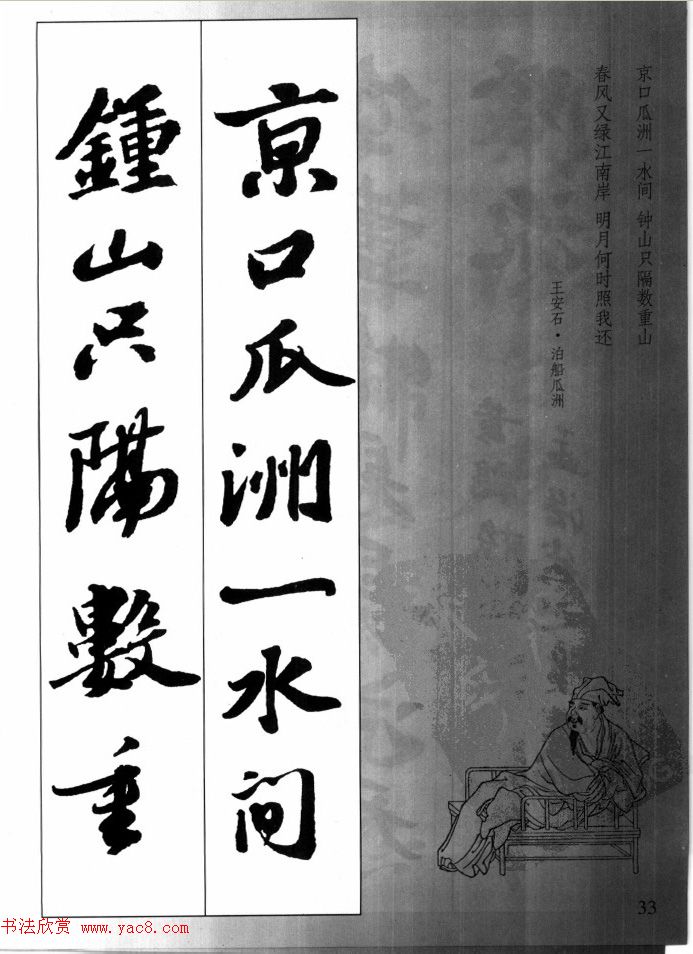 京口瓜洲一水间 钟山只隔数重山
春风又绿江南岸 明月何时照我还
王安石·泊船瓜洲
京口瓜洲一水间
鍾山只隔數重
33
书法欣赏 www.yac8.com